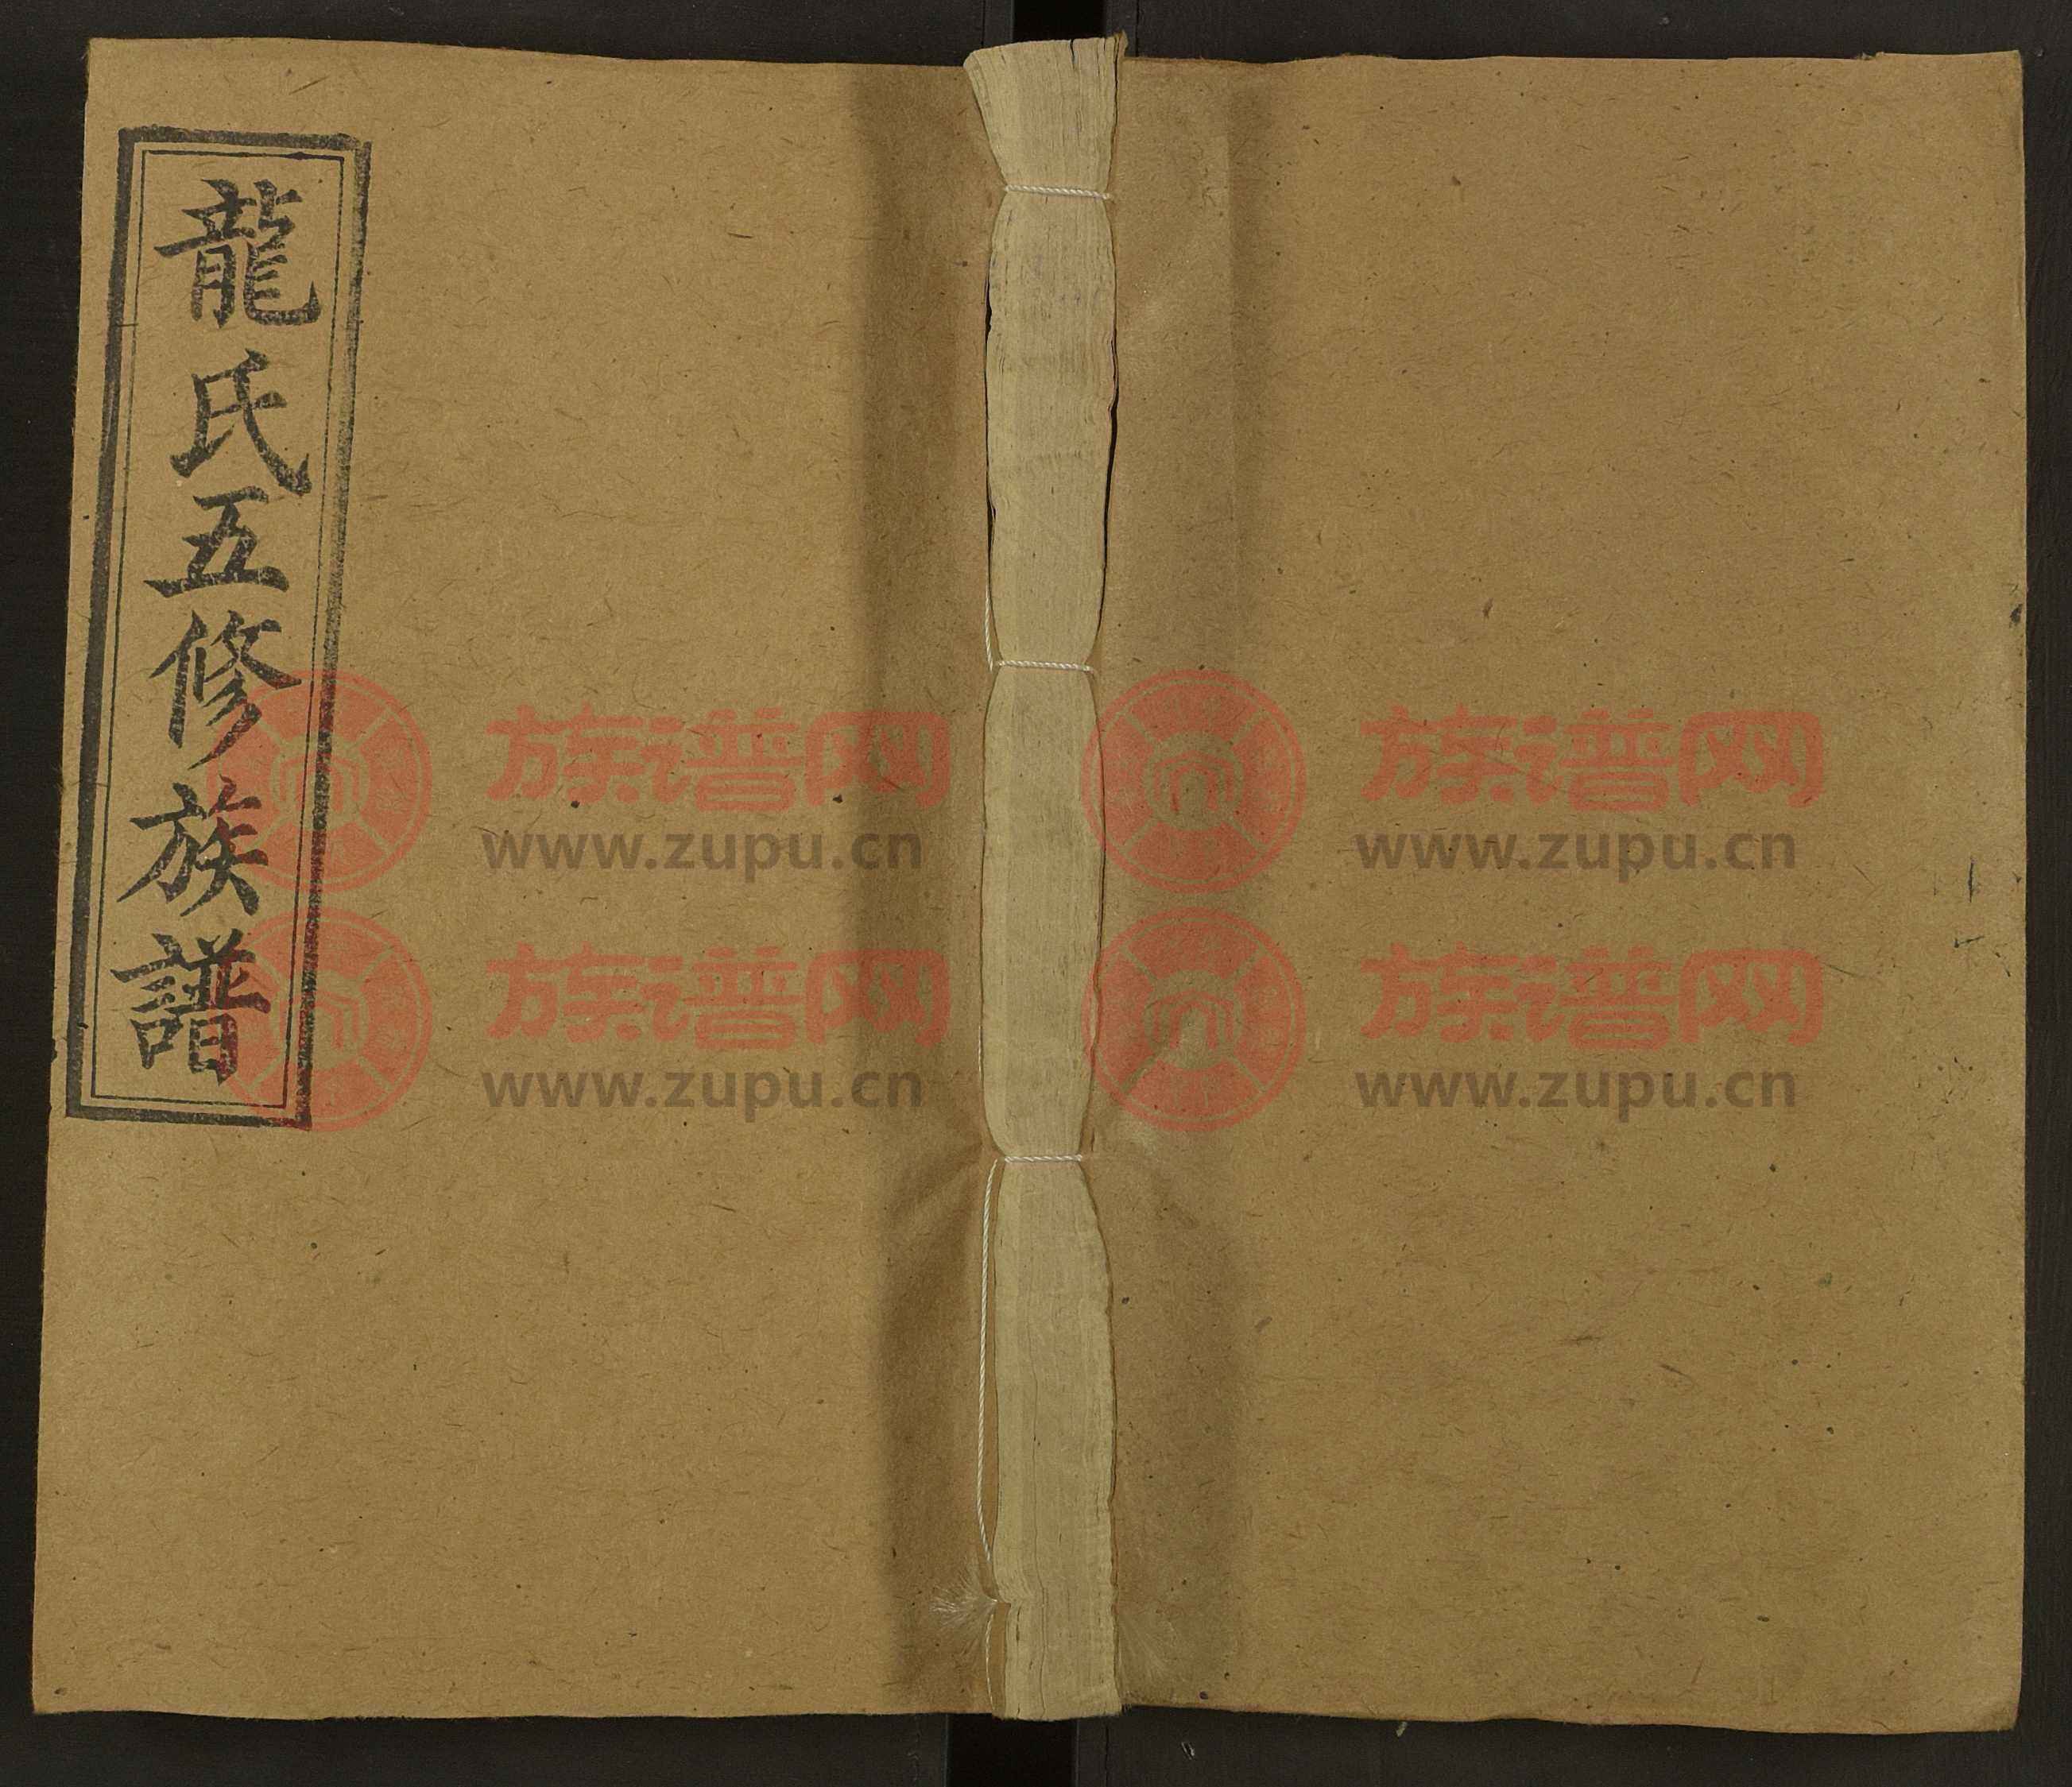 龍氏五修族譜
族谱网
www.zupu.cn
族谱网
www.zupu.cn
族谱网
www.zupu.cn
族谱网
www.zupu.cn